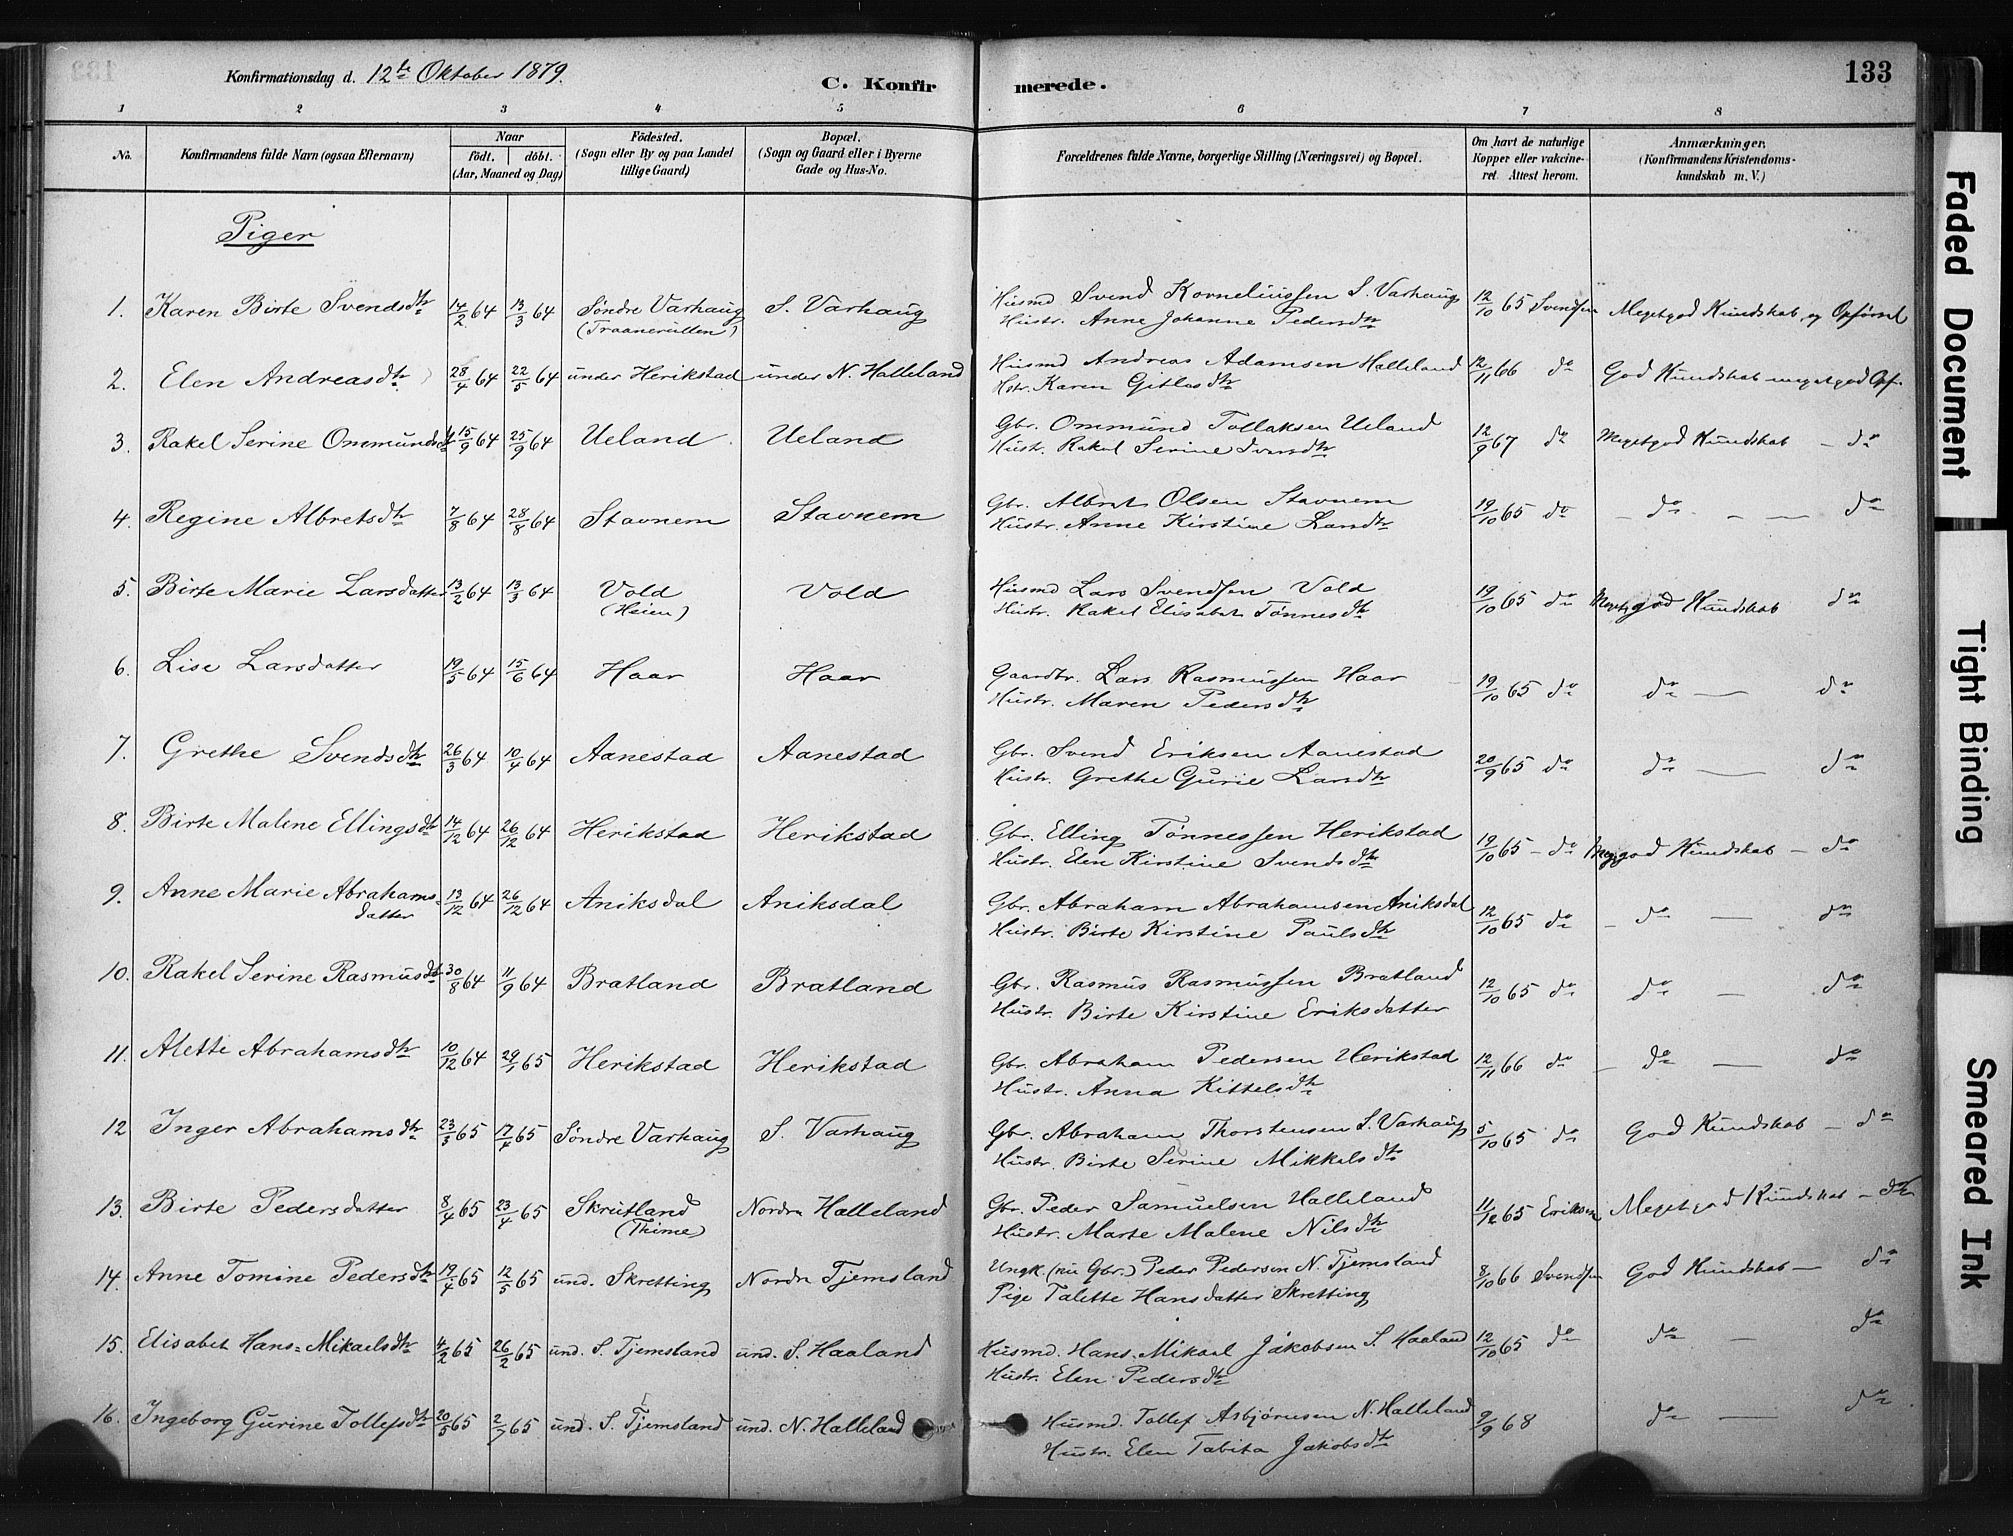 Konfirmationsdag d. 12te Oktober 1879.
C. Konfirmerede.
133
1 2 3 4 5 6 7 8
No.
Konfirmandens fulde Navn (ogsaa Efternavn)
Naar
födt. döbt.
(Aar, Maaned og Dag)
Födested.
(Sogn eller By og paa Landet
tillige Gaard)
Bopæl.
(Sogn og Gaard eller i Byerne
Gade og Hus-No.
Forældrenes fulde Navne, borgerlige Stilling (Næringsvei) og Bopæl.
Om havt de naturlige
Kopper eller vakcine-
ret. Attest herom.
Anmærkninger.
(Konfirmandens Kristendoms-
kundskab m. V.)
Piger
1. Karen Birte Svendsdtr 14/2 64 13/3 64 Søndre Varhaug S. Varhaug Husmd Svend Korneliussen S. Varhaug 12/10 65 Svendsen Megetgod Kundskab og Opførsel
(Traanerullen) Hustr. Anne Johanne Pedersdtr
2. Elen Andreasdtr 28/4 64 22/5 64 under Herikstad under N. Halleland Husmd Andreas Adamsen Halleland 12/11 66 do God Kundskab megetgod Opf.
Hstr. Karen Gitlesdtr
3. Rakel Serine Ommundsdtr 15/9 64 25/9 64 Ueland Ueland Gbr. Ommund Tollaksen Ueland 12/9 67 do Megetgod Kundskab – do
Hustr. Rakel Serine Iversdtr
4. Regine Albretsdtr 7/8 64 28/8 64 Stavnem Stavnem Gbr. Albret Olsen Stavnem 19/10 65 do – do – – do
Hustr. Anne Kirstine Larsdtr
5. Birte Marie Larsdatter 13/2 64 13/3 64 Vold Vold Husmd Lars Svendsen Vold 19/10 65 do Megetgod Kundskab do
(Heien) Hustr. Rakel Elisabet Tønnesdtr
6. Lise Larsdatter 19/5 64 15/6 64 Haar Haar Gaardbr. Lars Rasmussen Haar 19/10 65 do do – do
Hustr. Maren Pedersdtr
7. Grethe Svendsdtr 26/3 64 10/4 64 Aanestad Aanestad Gbr. Svend Eriksen Aanestad 20/9 65 do do – do
Hustr. Grethe Gurie Larsdtr
8. Birte Malene Ellingsdtr 14/12 64 26/12 64 Herikstad Herikstad Gbr. Elling Tønnessen Herikstad 19/10 65 – do Meggod Kundskab – do
Hustr. Elen Kirstine Svendsdtr
9. Anne Marie Abrahams- 13/12 64 26/12 64 Aniksdal Aniksdal Gbr. Abraham Abrahamsen Aniksdal 12/10 65 do – do – do
datter Hustr. Birte Kirstine Paulsdtr
10. Rakel Serine Rasmusdtr 30/8 64 11/9 64 Bratland Bratland Gbr. Rasmus Rasmussen Bratland 12/10 65 do do – do
Hustr. Birte Kirstine Eriksdatter
11. Alette Abrahamsdtr 10/12 64 29/1 65 Herikstad Herikstad Gbr. Abraham Pedersen Herikstad 12/11 66 do – do – do
Hustr. Anna Kittelsdtr
12 Inger Abrahamsdtr 23/3 65 17/4 65 Søndre Varhaug S. Varhaug Gbr. Abraham Thorstensen S. Varhaug 5/10 65 do God Kundskab – do
Hustr. Birte Serine Mikkelsdtr
13. Birte Pedersdatter 8/4 65 23/4 65 Skrutland Nordre Halleland Gbr. Peder Samuelsen Halleland 11/12 65 Eriksen Megetgod Kundskab – do
(Thime) Hustr. Marte Malene Nilsdtr
14. Anne Tomine Pedersdtr 19/4 65 12/5 65 und. Skretting Nordre Tjemsland Ungk. (nu Gbr.) Peder Pedersen N. Tjemsland 8/10 66 Svendsen God Kundskab – do
Pige Talette Hansdatter Skretting
15. Elisabet Hans-Mikaelsdtr 4/2 65 26/2 65 und. S. Tjemsland und. S. Haaland Husmd. Hans Mikael Jakobsen S. Haaland 12/10 65 do do – do
Hustr. Elen Pedersdtr
16. Ingeborg Gurine Tollefsdtr 20/5 65 2/7 65 und. S. Tjemsland und. N. Halleland Husmd. Tollef Asbjørnsen N. Halleland 9/9 68 do – do
Hustr. Elen Tabita Jakobsdtr
Faded Document
Tight Binding
Smeared Ink